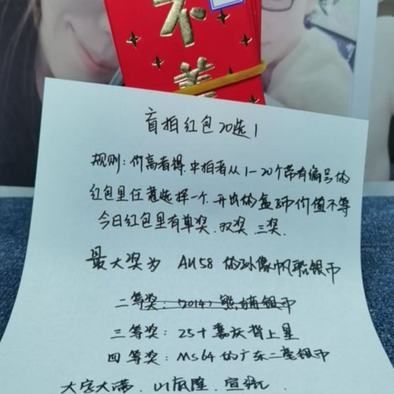 不
盲拍红包20选1
规则:价高者得.中拍者从1-20个带有编号的
红包里任意选择一个.开出的盒子币价值不等
今日红包里有单奖.双奖.三奖.
最大奖为 AU58的孙像帆船银币
二等奖:2014)熊猫银币
三等奖:25十嘉庆背上星
四等奖:MS64的广东二毫银币
大字大满.